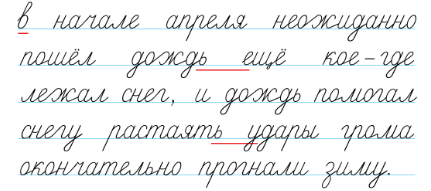 в начале апреля неожиданно
пошёл дождь ещё кое-где
лежал снег, и дождь помогал
снегу растаять удары грома
окончательно прогнали зиму.